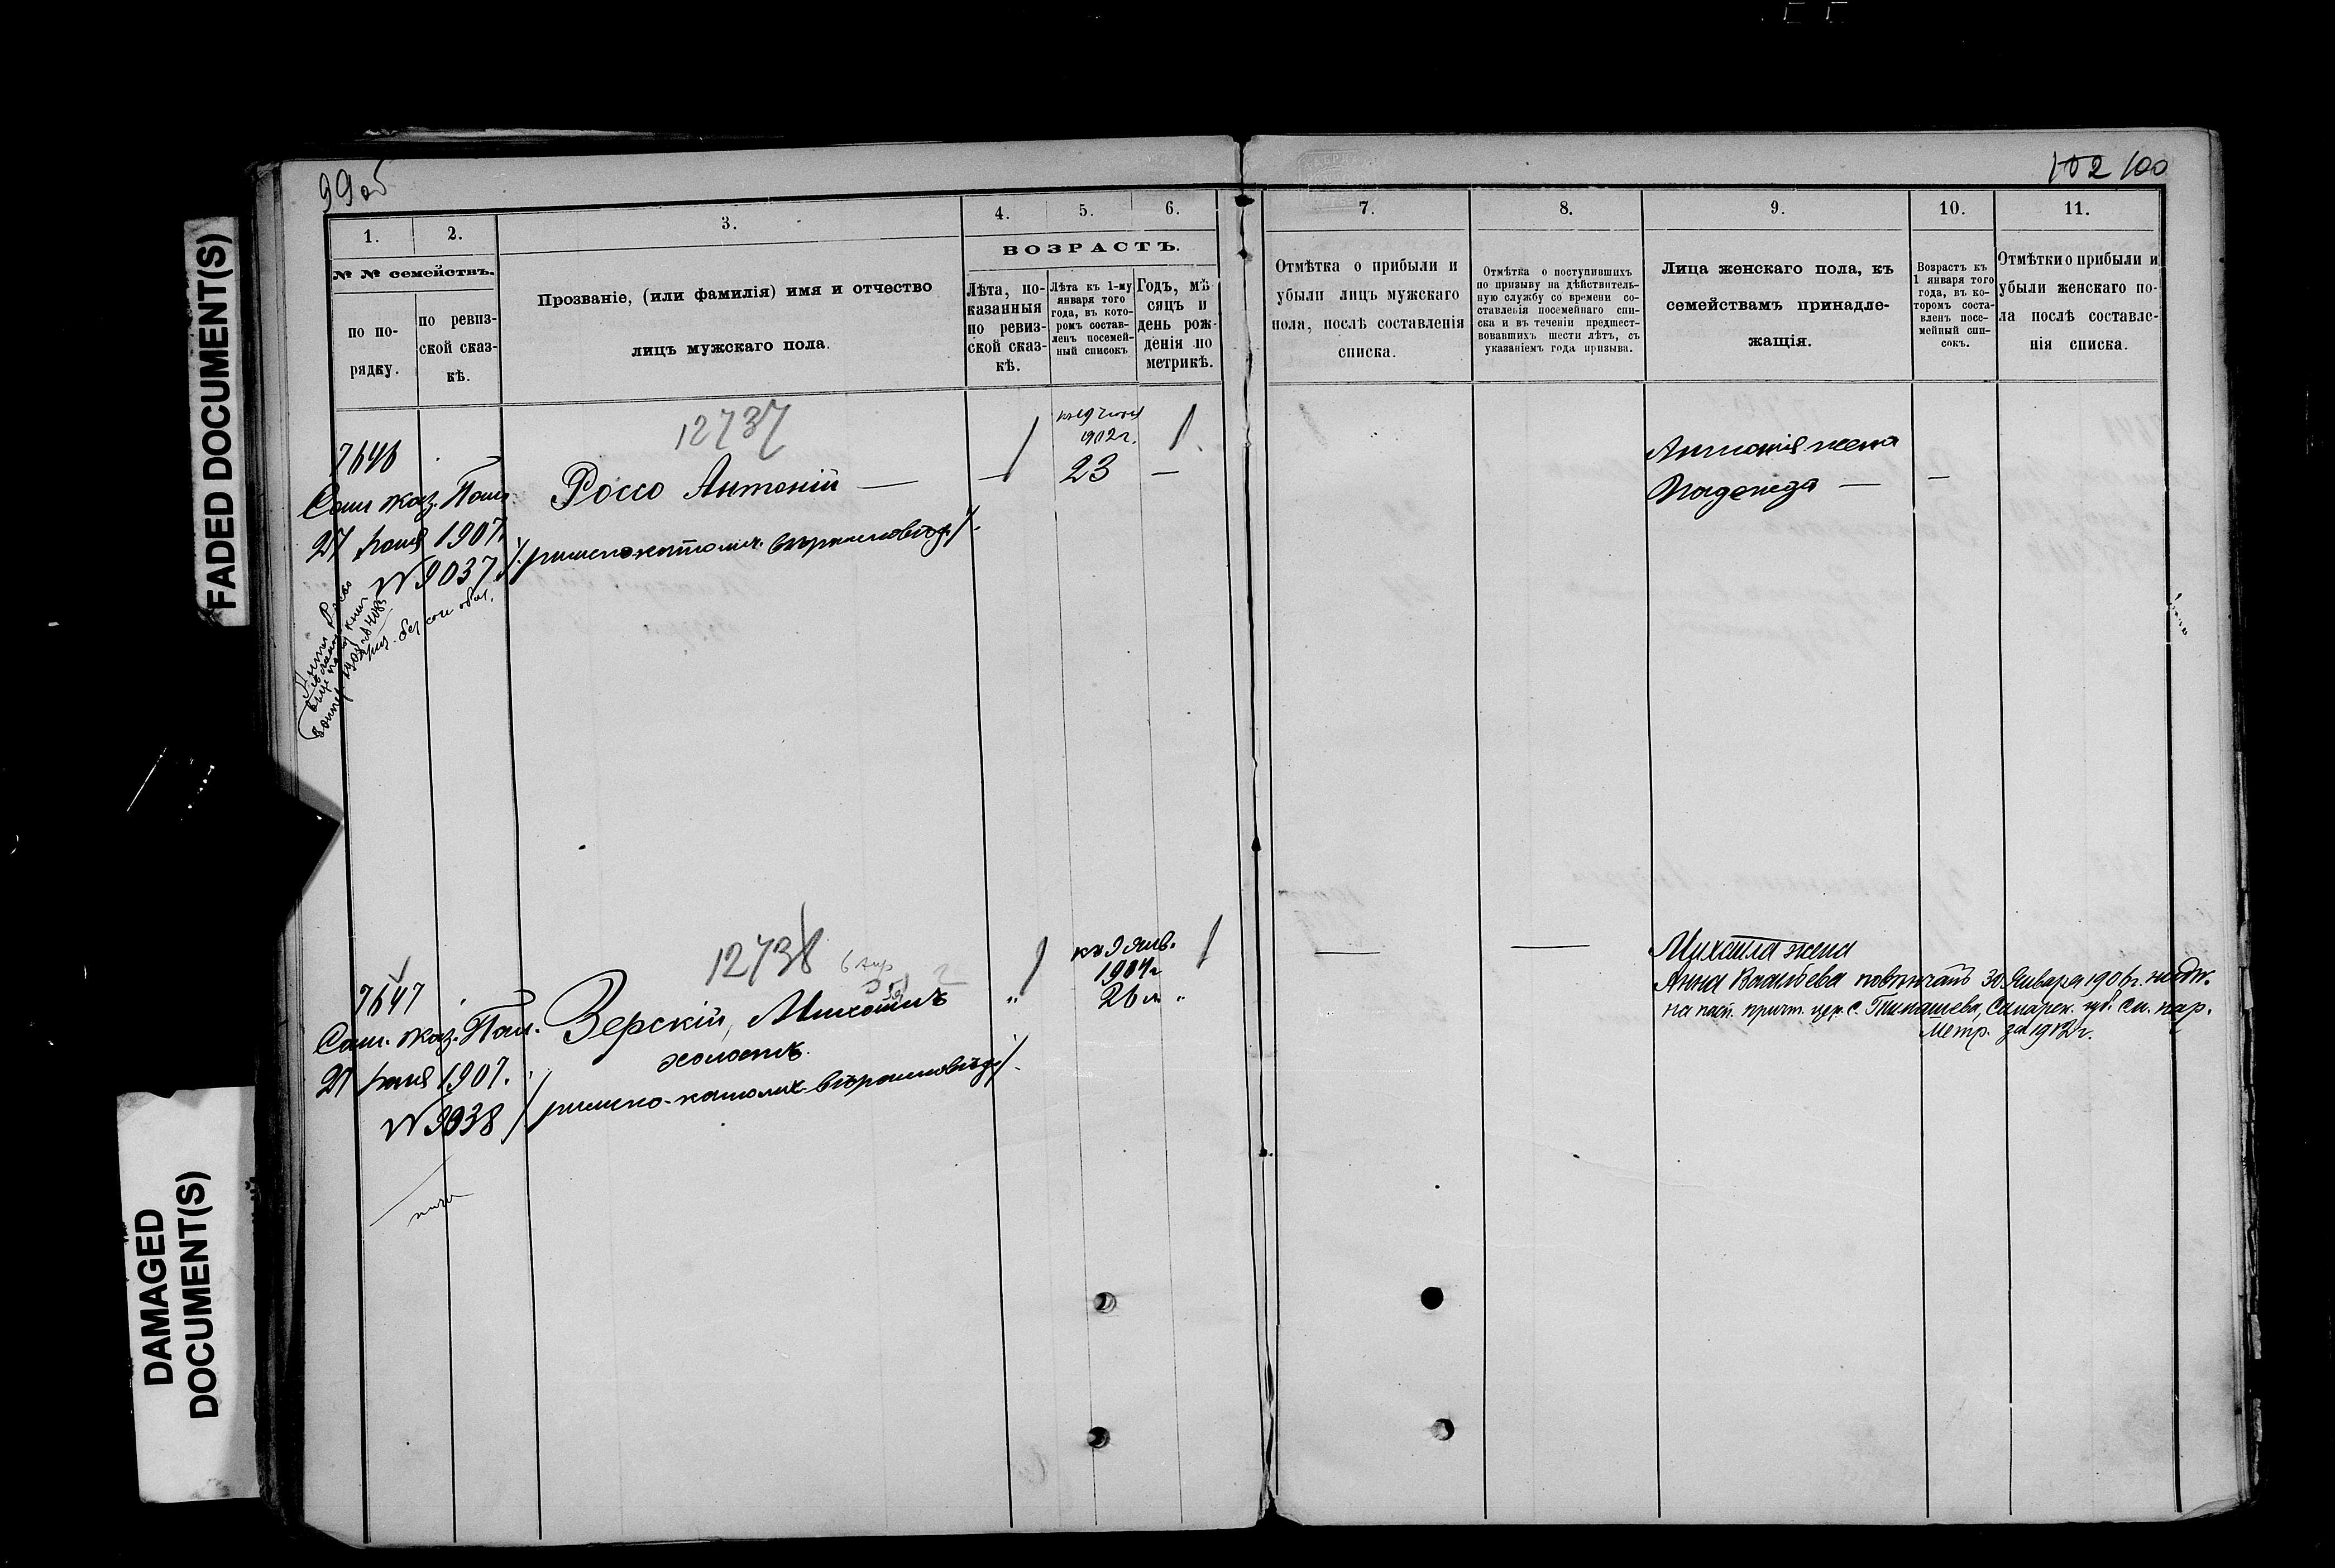 FADED DOCUMENT(S)
DAMAGED
DOCUMENT(S)
99 об
102 100
1.
2.
3.
4.
5.
6.
№ № семействъ.
по по-
рядку.
по ревиз-
ской сказ-
кѣ.
Прозваніе, (или фамилія) имя и отчество
лицъ мужскаго пола.
ВОЗРАСТЪ.
Лѣта, по-
казанныя
по ревиз-
ской сказ-
кѣ.
Лѣта къ 1-му
января того
года, въ кото-
ромъ состав-
ленъ посемей-
ный списокъ
Годъ, мѣ-
сяцъ и
день рож-
денія по
метрикѣ.
7.
8.
9.
10.
11.
Отмѣтка о прибыли и
убыли лицъ мужскаго
пола, послѣ составленія
списка.
Отмѣтка о поступившихъ
по призыву на дѣйствитель-
ную службу со времени со-
ставленія посемейнаго спи-
ска и въ теченіи предшест-
вовавшихъ шести лѣтъ, съ
указаніемъ года призыва.
Лица женскаго пола, къ
семействамъ принадле-
жащія.
Возрастъ къ
1 января того
года, въ ко-
торомъ соста-
вленъ посе-
мейный спи-
сокъ.
Отмѣтки о прибыли и
убыли женскаго по-
ла послѣ составле-
нія списка.
12737
1902 г.
7646
23 —
Сам. каз. Пал.
Россо Антоній —
27 1907.
№ 9037
/римско-католич. вѣроисповѣд/
Антонія жена
Надежда — —
12738
къ 9 янв.
1904 г.
7647
26 л.
Сам. каз. Пал.
Зерскій, Михаилъ
холостъ.
27 1907.
№ 9038
/римско-католич. вѣроисповѣд/
— —
Михаила жена
Анна Васильева повѣнчанъ 30 Января 1906 г.
на прич. цер. с. Тимашева, Самарск. губ. См. пар.
Метр. за 1912 г.